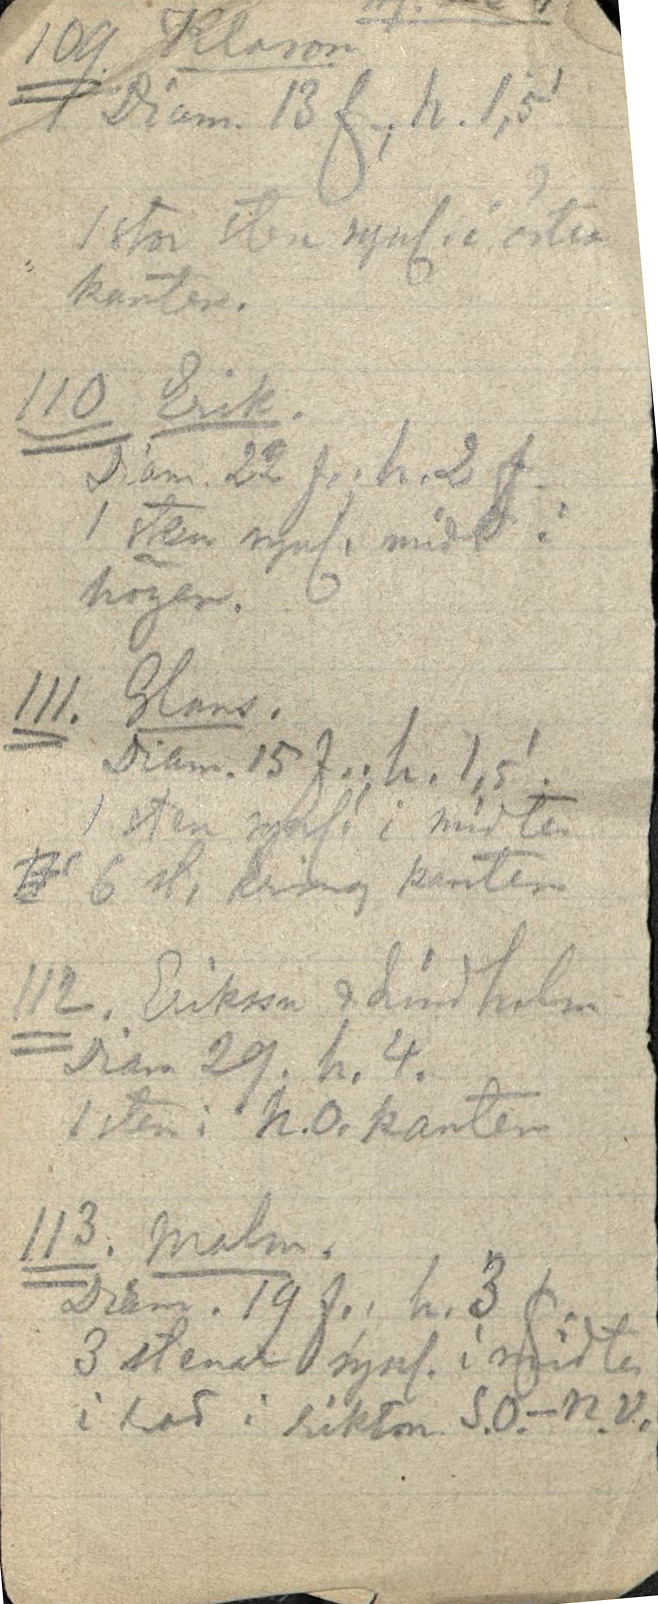 109. Klason
Diam. 13 f., h. 1,5'
1 stor sten synl. i östra
kanten.
110 Erik.
Diam. 22 f., h. 2 f.
1 sten synl. midt i
högen.
111. Glans.
Diam. 15 f., h. 1,5'.
1 sten synl. i midten
6 st. kring kanten
112. Eriksson & Lindholm
Diam 29. h. 4.
1 sten i N.O. kanten
113. Malm.
Diam. 19 f., h. 3 f.
3 stenar synl. i midten
i rad i riktn. S.O.–N.V.